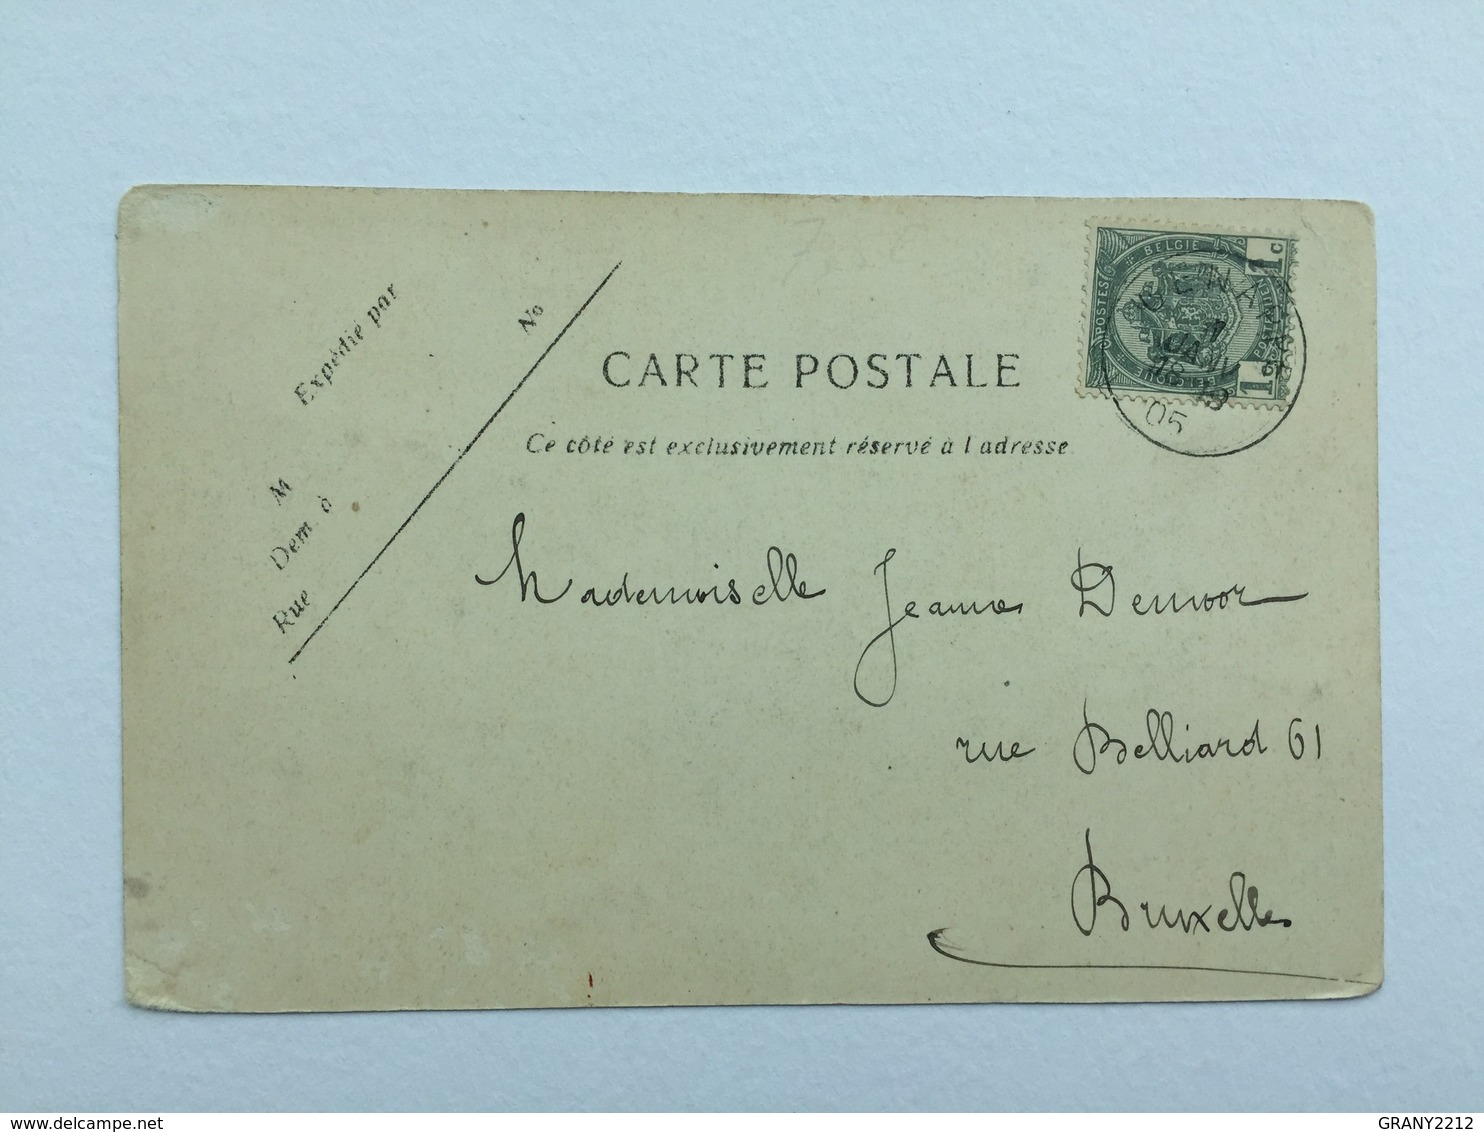 Expédié par
No
M
Dem. à
Rue
CARTE POSTALE
Ce côté est exclusivement réservé à l'adresse
BELGIE
POSTES
BELGIQUE
1 c
1 c
05
Mademoiselle Jeanne Demoor
rue Belliard 61
Bruxelles
delcampe.net
GRANY2212